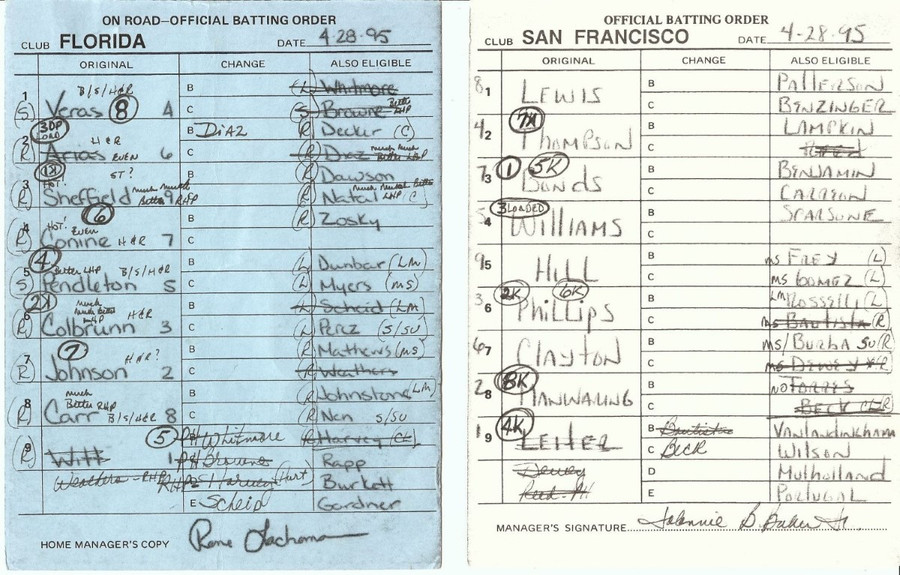 ON ROAD—OFFICIAL BATTING ORDER
CLUB FLORIDA DATE 4-28-95
ORIGINAL CHANGE ALSO ELIGIBLE
B/S/H&R B (L) Whitmore
1 (S) Veras 8 4 C (S) Browne Better LHP
3DP LOAD H&R B DIAZ (R) Decker (C)
2 (R) Arias EVEN 6 C (R) Diaz much much Better LHP
1K ST? B (R) Dawson
3 HOT! (R) Sheffield much much Better RHP 9 C (R) Natal (C)
6 B (R) Zosky
4 HOT! EVEN (R) Conine H&R 7 C
4 B (L) Dunbar (LM)
5 Better LHP B/S/H&R (S) Pendleton 5 C (L) Myers (MS)
2K B (L) Scheid (LM)
6 much much Better LHP H&R (R) Colbrunn 3 C (L) Perez (S/SU)
7 B (R) Mathews (MS)
7 H&R? (R) Johnson 2 C (R) Weathers
much B (R) Johnstone (LM)
8 Better RHP (R) Carr B/S/H&R 8 C (R) Nen S/SU
5 B PH Whitmore (R) Harvey (CL)
9 (R) Witt 1 PH Browne Rapp
Weathers Harvey (Hurt) Burkett
E Scheid Gardner
HOME MANAGER'S COPY Rene Lachemann
OFFICIAL BATTING ORDER
CLUB SAN FRANCISCO DATE 4-28-95
ORIGINAL CHANGE ALSO ELIGIBLE
8 1 LEWIS B PATTERSON
C BENZINGER
4 2 THOMPSON B LAMPKIN
C REED
7 3 1 5K BONDS B BENJAMIN
C CARREON
3 LOADED B SCARSONE
5 4 WILLIAMS C
9 5 HILL B MS FREY (L)
C MS GOMEZ (L)
3 6 2K 6K PHILLIPS B LM ROSSELLI (L)
C MS BAUTISTA (R)
6 7 CLAYTON B MS/BURBA SU (R)
C MS DEWEY (R)
2 8 8K MANWARING B NO TORRES
C BECK CL (R)
1 9 4K LEITER B Bautista VANLANDINGHAM
C BECK WILSON
Dewey D MULHOLLAND
Reed PH E PORTUGAL
MANAGER'S SIGNATURE Johnnie B. Baker Jr.